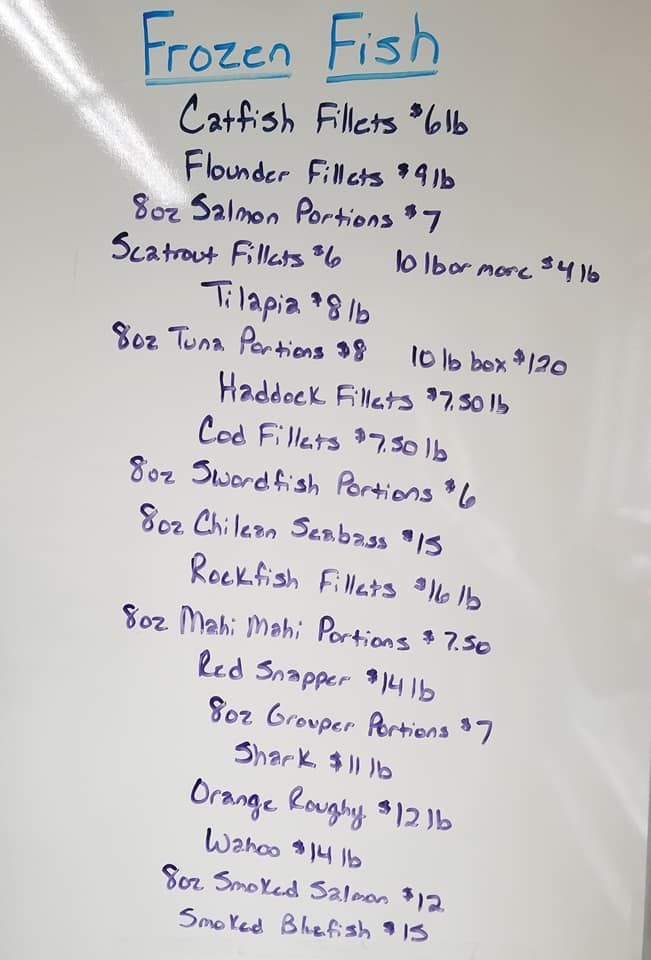 Frozen Fish
Catfish Fillets $6 lb
Flounder Fillets $9 lb
8oz Salmon Portions $7
Seatrout Fillets $6 10 lb or more $4 lb
Tilapia $8 lb
8oz Tuna Portions $8 10 lb box $120
Haddock Fillets $7.50 lb
Cod Fillets $7.50 lb
8oz Swordfish Portions $6
8oz Chilean Seabass $15
Rockfish Fillets $16 lb
8oz Mahi Mahi Portions $7.50
Red Snapper $14 lb
8oz Grouper Portions $7
Shark $11 lb
Orange Roughy $12 lb
Wahoo $14 lb
8oz Smoked Salmon $12
Smoked Bluefish $15